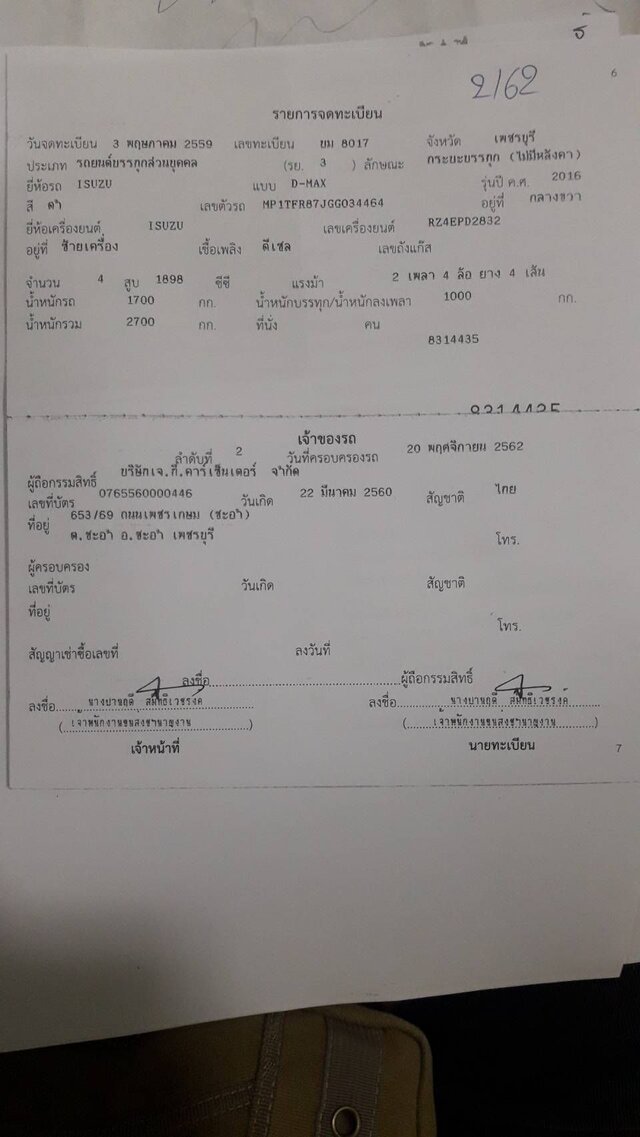 2/62
6
รายการจดทะเบียน
วันจดทะเบียน 3 พฤษภาคม 2559 เลขทะเบียน ยม 8017 จังหวัด เพชรบุรี
ประเภท รถยนต์บรรทุกส่วนบุคคล (รย. 3 ) ลักษณะ กระบะบรรทุก (ไม่มีหลังคา)
ยี่ห้อรถ ISUZU แบบ D-MAX รุ่นปี ค.ศ. 2016
สี ดำ เลขตัวรถ MP1TFR87JGG034464 อยู่ที่ กลางขวา
ยี่ห้อเครื่องยนต์ ISUZU เลขเครื่องยนต์ RZ4EPD2832
อยู่ที่ ซ้ายเครื่อง เชื้อเพลิง ดีเซล เลขถังแก๊ส
จำนวน 4 สูบ 1898 ซีซี แรงม้า 2 เพลา 4 ล้อ ยาง 4 เส้น
น้ำหนักรถ 1700 กก. น้ำหนักบรรทุก/น้ำหนักลงเพลา 1000 กก.
น้ำหนักรวม 2700 กก. ที่นั่ง คน
8314435
8314435
เจ้าของรถ
ลำดับที่ 2 วันที่ครอบครองรถ 20 พฤศจิกายน 2562
ผู้ถือกรรมสิทธิ์ บริษัทเจ.ที.คาร์เซ็นเตอร์ จำกัด
เลขที่บัตร 0765560000446 วันเกิด 22 มีนาคม 2560 สัญชาติ ไทย
ที่อยู่ 653/69 ถนนเพชรเกษม (ชะอำ)
ต.ชะอำ อ.ชะอำ เพชรบุรี
โทร.
ผู้ครอบครอง
เลขที่บัตร วันเกิด สัญชาติ
ที่อยู่
โทร.
สัญญาเช่าซื้อเลขที่ ลงวันที่
ลงชื่อ ผู้ถือกรรมสิทธิ์
ลงชื่อ ลงชื่อ
(เจ้าพนักงานขนส่งชำนาญงาน) (เจ้าพนักงานขนส่งชำนาญงาน)
เจ้าหน้าที่ นายทะเบียน
7